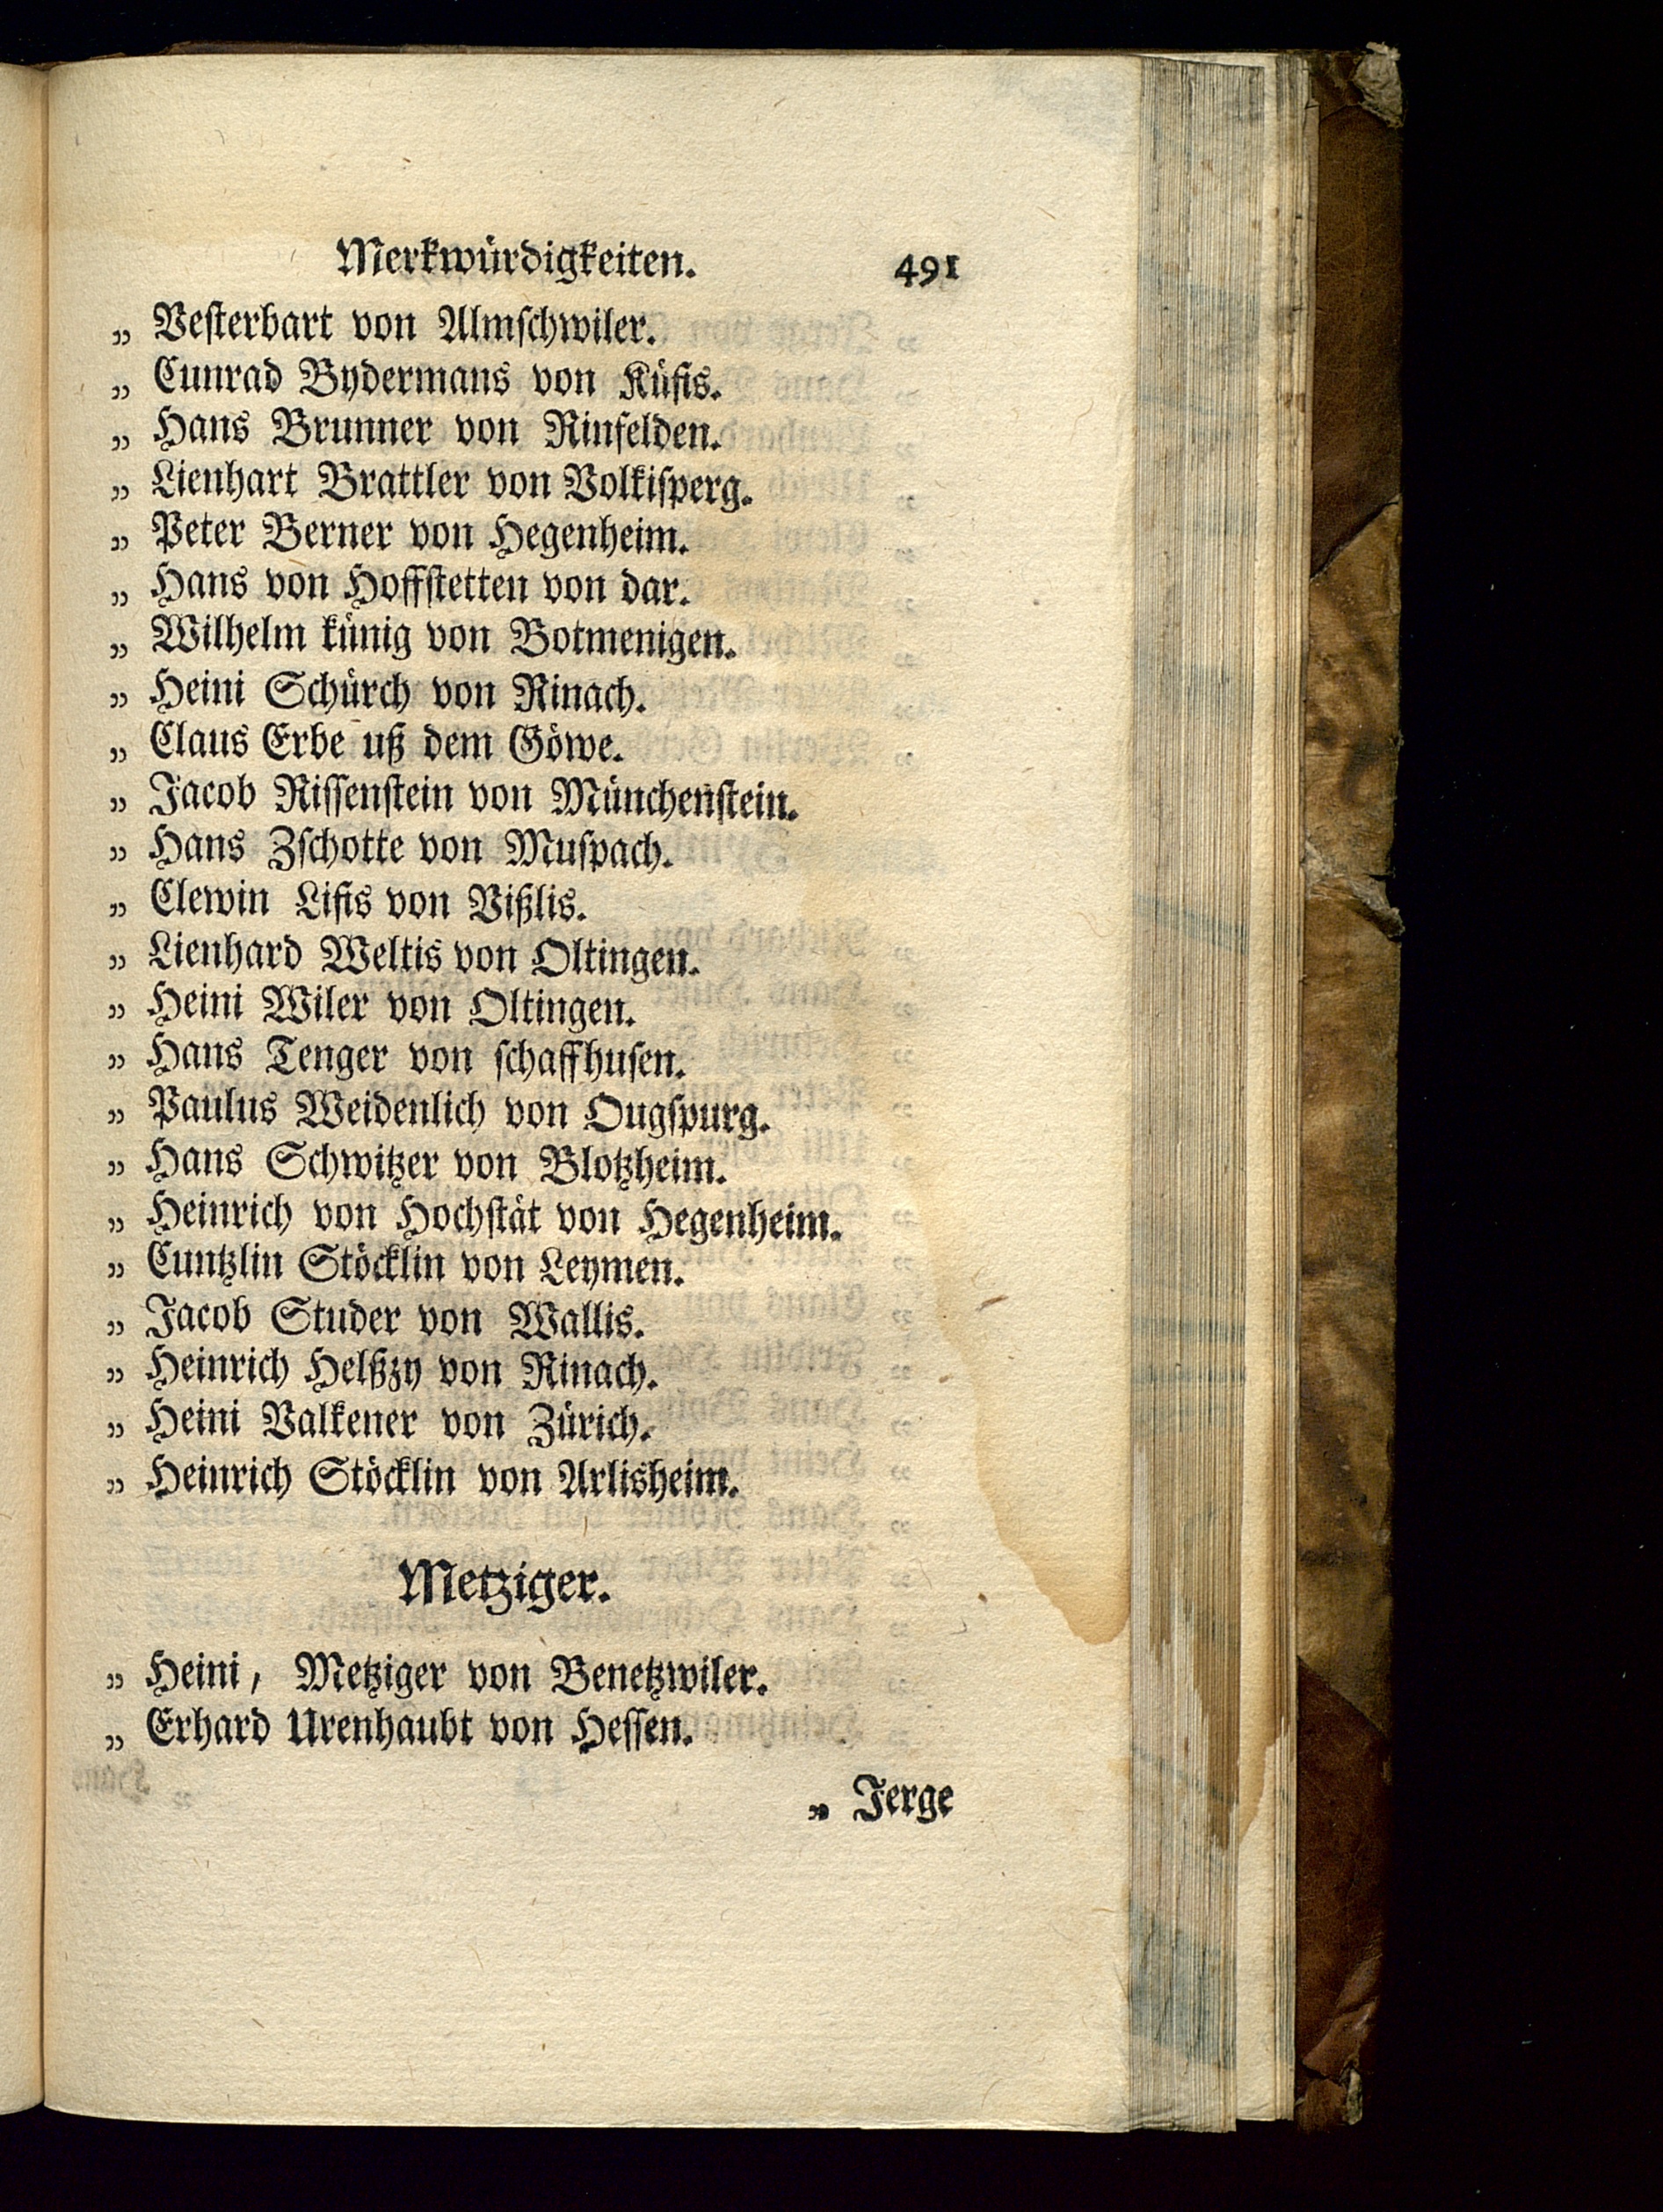 Merkwürdigkeiten. 491
„ Vesterbart von Almschwiler.
„ Cunrad Bydermans von Küfis.
„ Hans Brunner von Rinfelden.
„ Lienhart Brattler von Volkisperg.
„ Peter Berner von Hegenheim.
„ Hans von Hoffstetten von dar.
„ Wilhelm künig von Botmenigen.
„ Heini Schürch von Rinach.
„ Claus Erbe uß dem Göwe.
„ Jacob Rissenstein von Münchenstein.
„ Hans Zschotte von Muspach.
„ Clewin Lifis von Vißlis.
„ Lienhard Weltis von Oltingen.
„ Heini Wiler von Oltingen.
„ Hans Tenger von schaffhusen.
„ Paulus Weidenlich von Ougspurg.
„ Hans Schwitzer von Blotzheim.
„ Heinrich von Hochstät von Hegenheim.
„ Cuntzlin Stöcklin von Leymen.
„ Jacob Studer von Wallis.
„ Heinrich Helßzy von Rinach.
„ Heini Valkener von Zürich.
„ Heinrich Stöcklin von Arlisheim.
Metziger.
„ Heini, Metziger von Benetzwiler.
„ Erhard Urenhaubt von Hessen.
„ Jerge